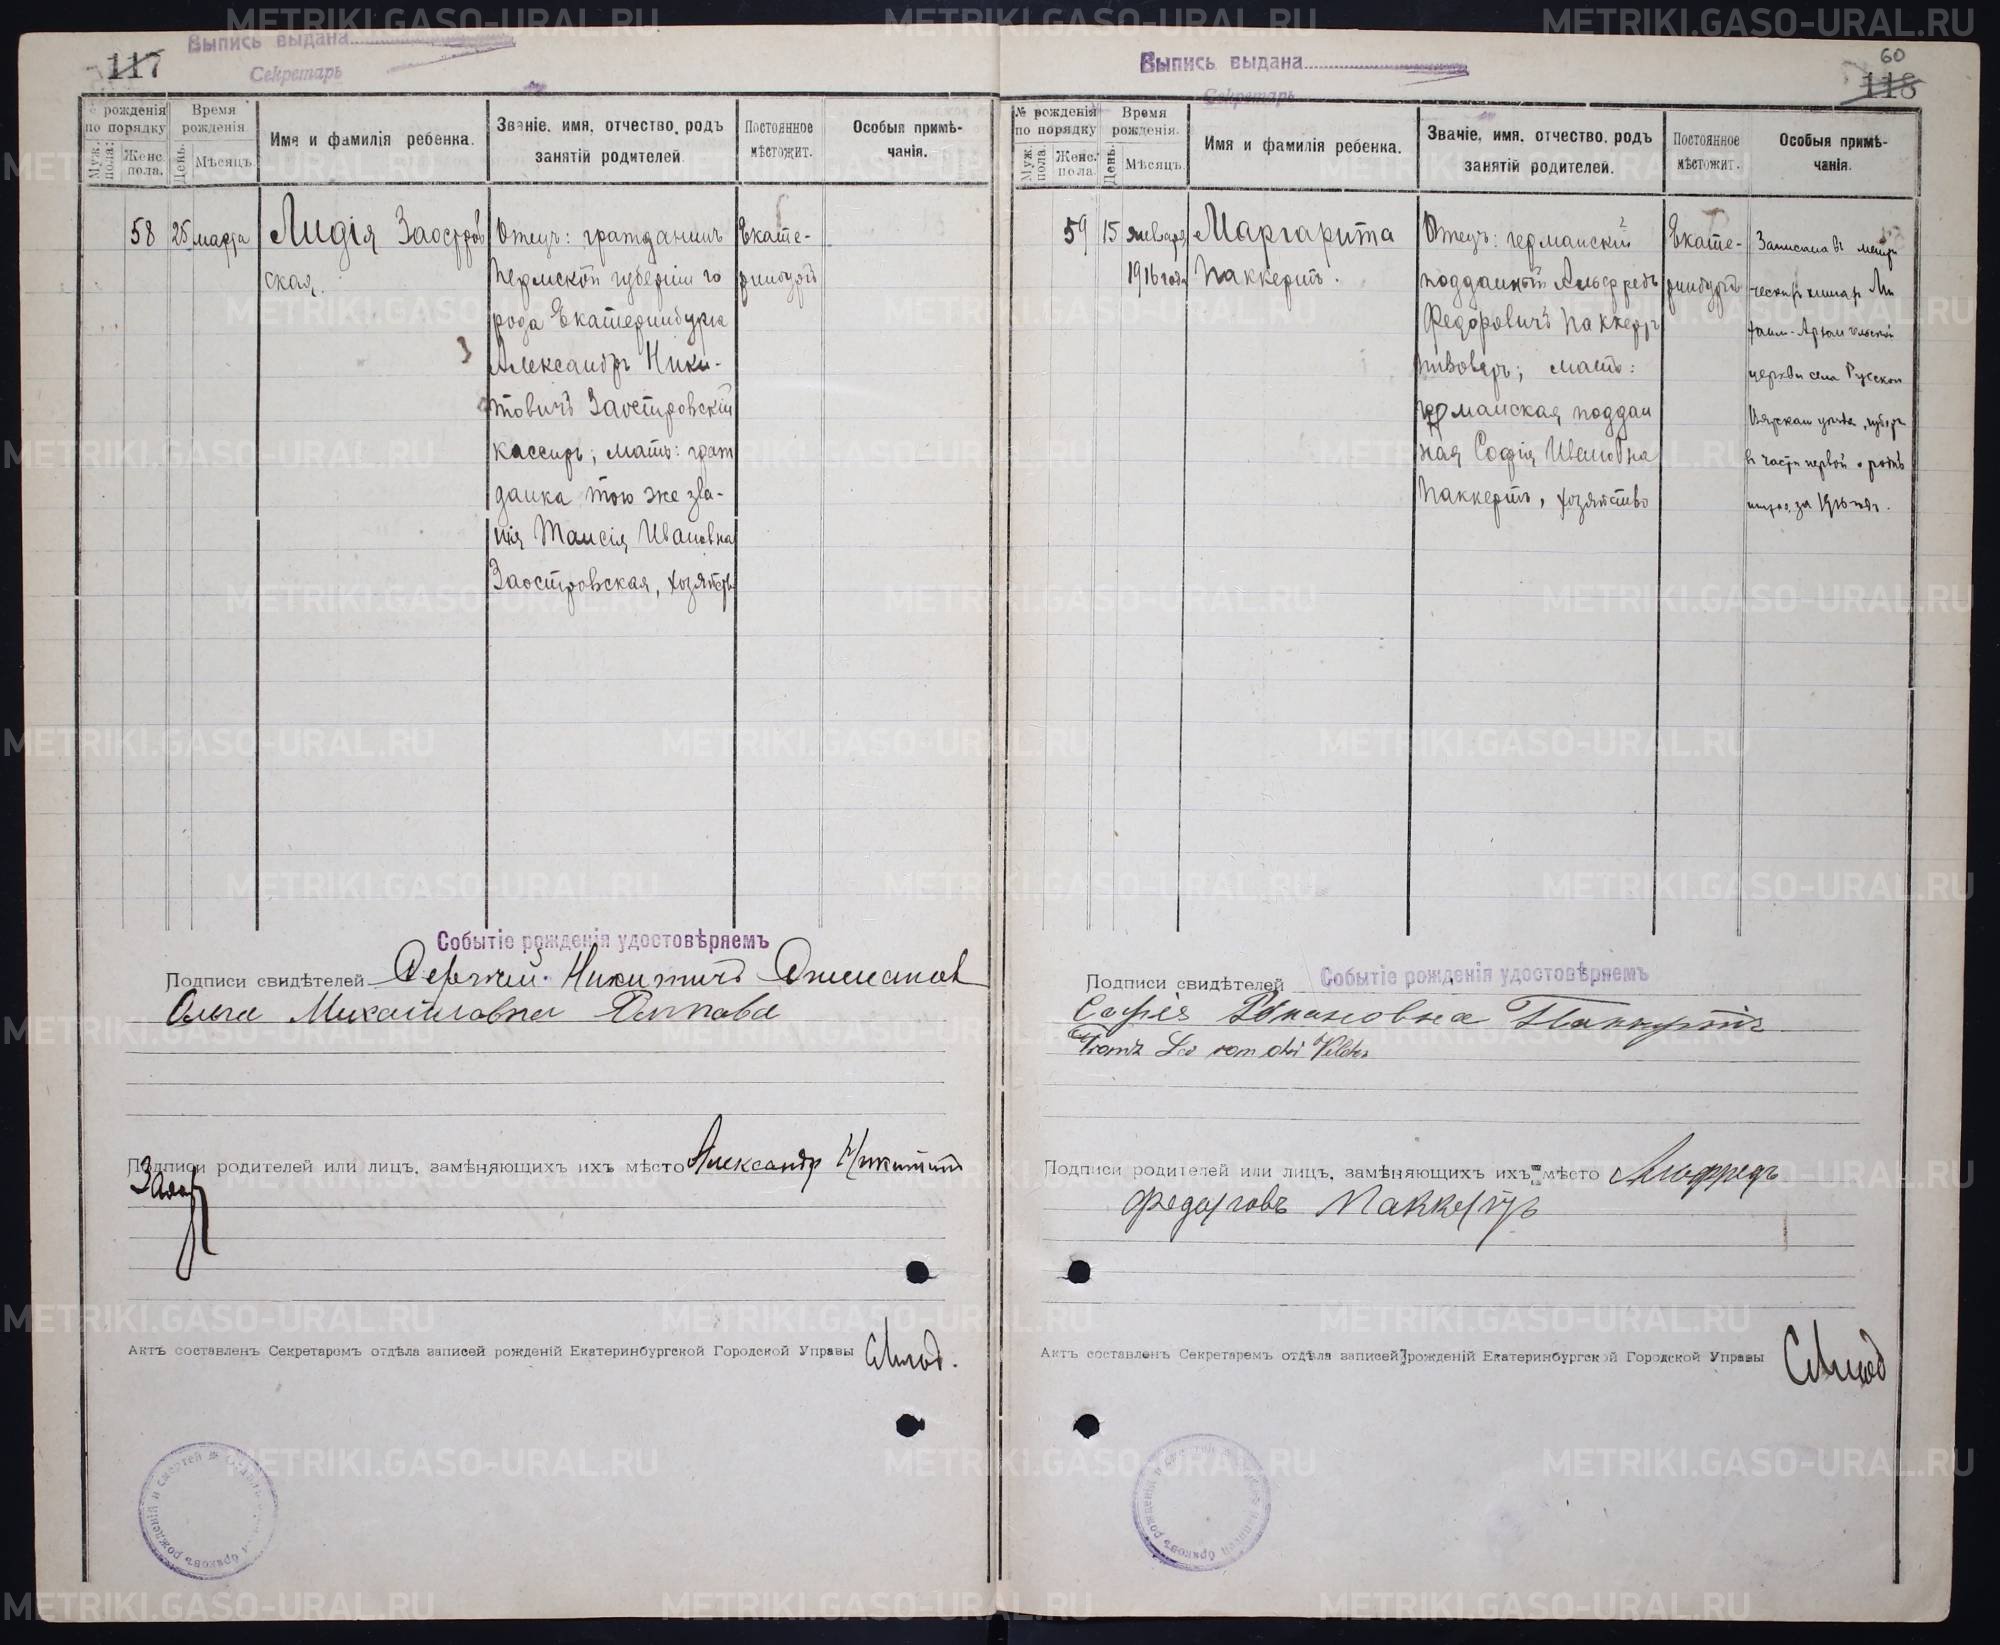 117
Выпись выдана
Секретарь
№ рожденія по порядку
Муж. пола.
Женс. пола.
Время рожденія.
День.
Мѣсяцъ.
Имя и фамилія ребенка.
Званіе, имя, отчество, родъ
занятій родителей.
Постоянное
мѣстожит.
Особыя примѣ-
чанія.
58 25 марта
Лидія Заостров
ская.
Отецъ: гражданинъ
Пермской губерніи го
рода Екатеринбурга
Александръ Ники-
товичъ Заостровскій
кассиръ; мать: граж
данка того же зва-
нія Таисія Ивановна
Заостровская, хозяйств
Екате-
ринбургъ
Событіе рожденія удостовѣряемъ
Подписи свидѣтелей Сергѣй Никитичъ
Ольга Михайловна
Подписи родителей или лицъ, замѣняющихъ ихъ мѣсто Александр Никитич
Заос
Актъ составленъ Секретаремъ отдѣла записей рожденій Екатеринбургской Городской Управы
60
118
Выпись выдана
Секретарь
№ рожденія
по порядку
Муж. пола.
Женс. пола.
Время
рожденія.
День.
Мѣсяцъ.
Имя и фамилія ребенка.
Званіе, имя, отчество, родъ
занятій родителей.
Постоянное
мѣстожит.
Особыя примѣ-
чанія.
59 15 января
1916 года
Маргарита
Паккертъ.
Отецъ: германскій
подданный Альфредъ
Федоровичъ Паккертъ
пивоваръ; мать:
германская поддан
ная Софія Ивановна
Паккертъ, хозяйство
Екате-
ринбургъ
Записана въ метри
ческихъ книгахъ Ми
хаило-Архангельской
церкви села Русской
уѣзда, губер
въ части первой о родив
шихся за 1916 годъ.
Событіе рожденія удостовѣряемъ
Подписи свидѣтелей
Софія Ивановна Паккертъ
Franz
Подписи родителей или лицъ, замѣняющихъ ихъ мѣсто Альфредъ
Федоровъ Паккертъ
Актъ составленъ Секретаремъ отдѣла записей рожденій Екатеринбургской Городской Управы
METRIKI.GASO-URAL.RU